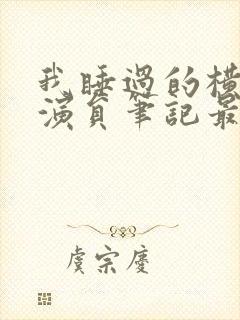 我睡過的橫
演員筆記最
虞宗慶